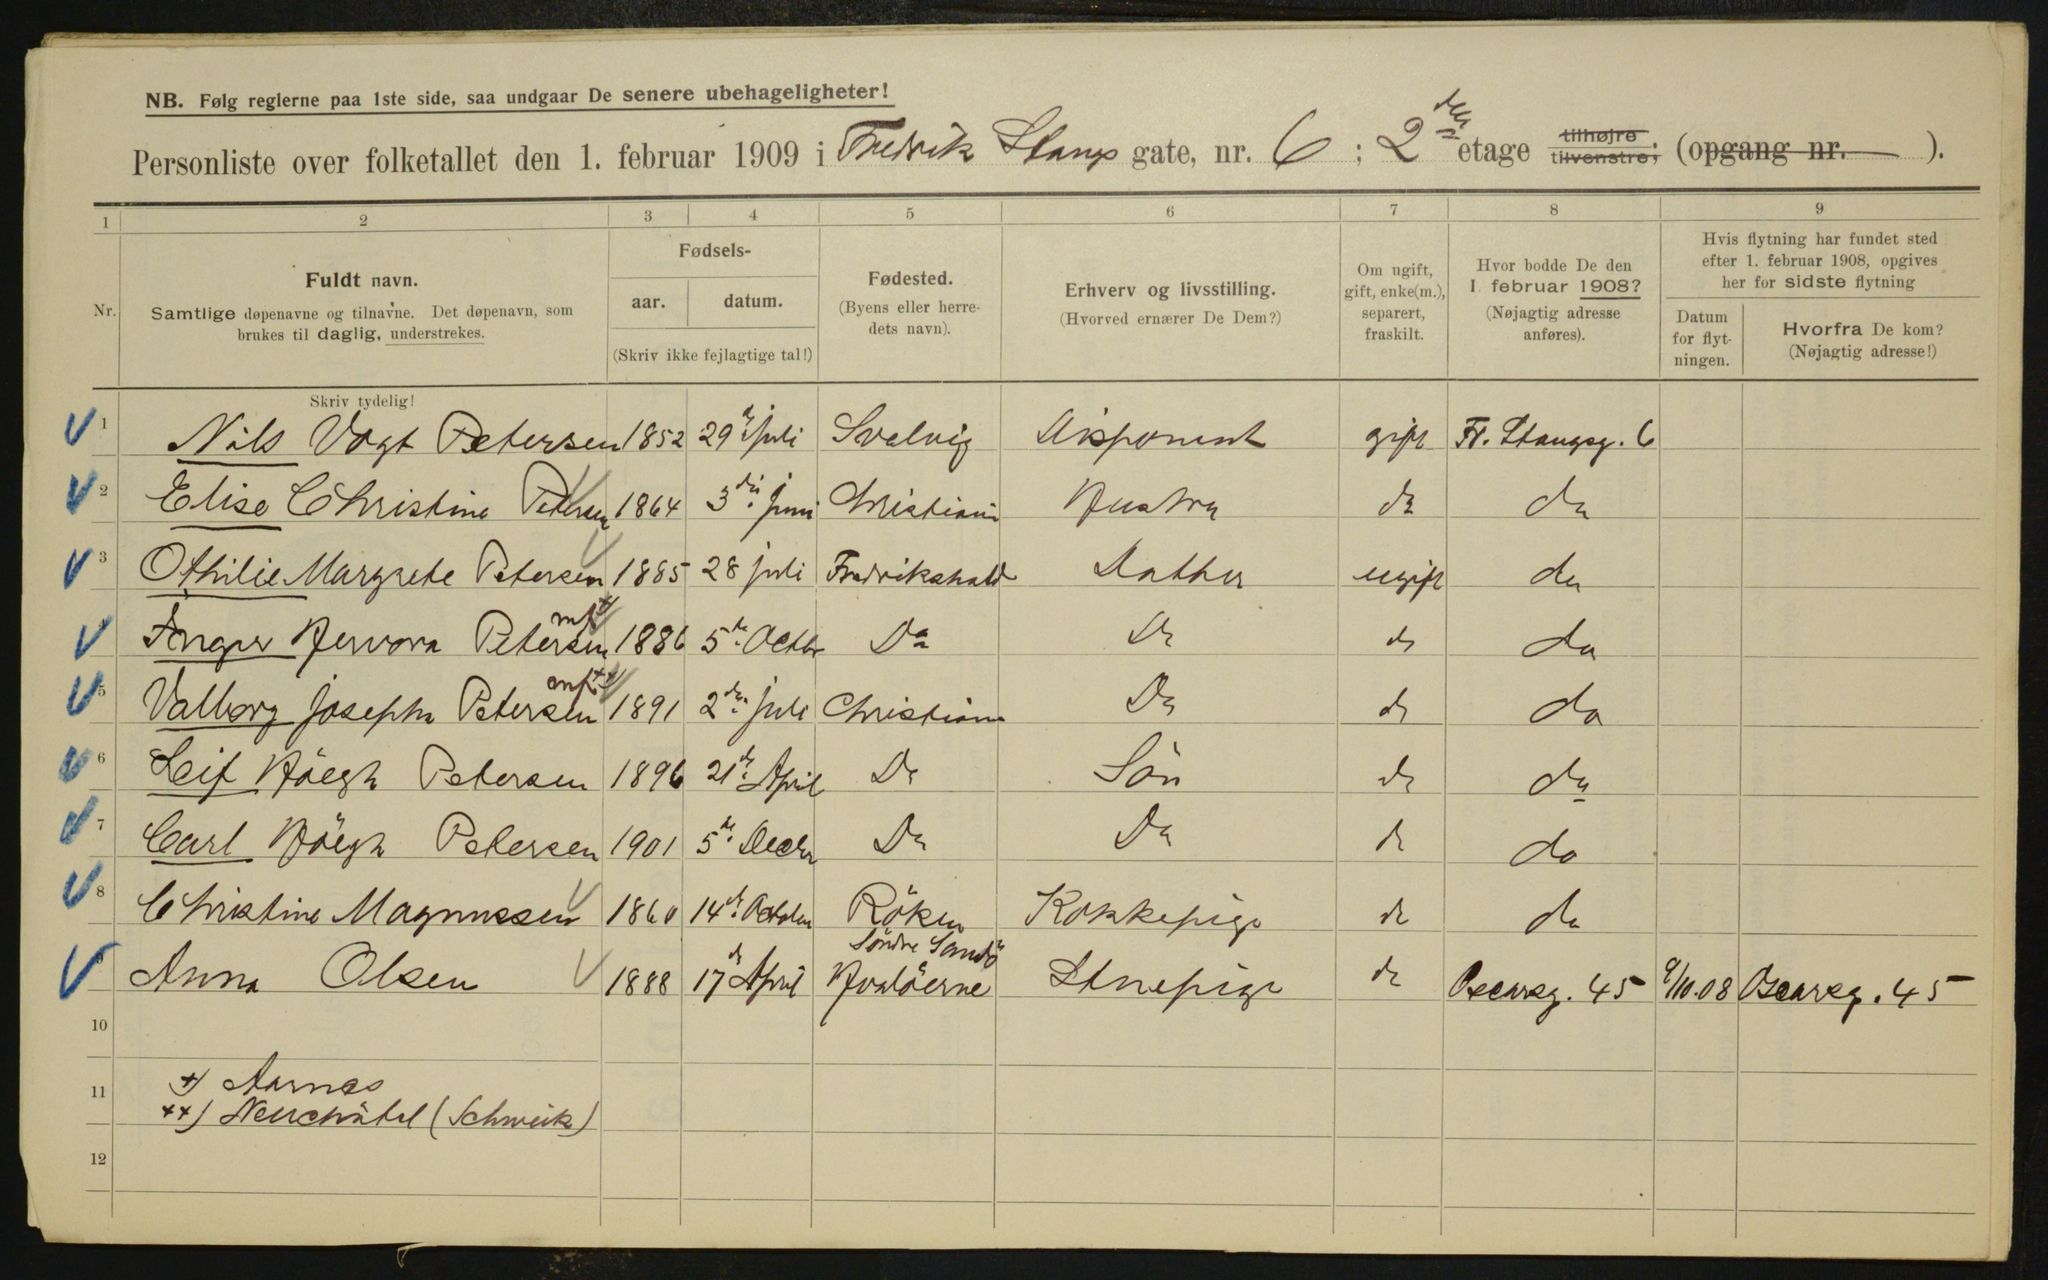 NB. Følg reglerne paa 1ste side, saa undgaar De senere ubehageligheter!
Personliste over folketallet den 1. februar 1909 i Fredrik Stangs gate, nr. 6 ; 2den etage tilhøjre tilvenstre; (opgang nr. ).
1 2 3 4 5 6 7 8 9
Nr.
Fuldt navn.
Samtlige døpenavne og tilnavne. Det døpenavn, som
brukes til daglig, understrekes.
Fødsels-
aar. datum.
(Skriv ikke fejlagtige tal!)
Fødested.
(Byens eller herre-
dets navn).
Erhverv og livsstilling.
(Hvorved ernærer De Dem?)
Om ugift,
gift, enke(m.),
separert,
fraskilt.
Hvor bodde De den
1. februar 1908?
(Nøjagtig adresse
anføres).
Hvis flytning har fundet sted
efter 1. februar 1908, opgives
her for sidste flytning
Datum
for flyt-
ningen.
Hvorfra De kom?
(Nøjagtig adresse!)
Skriv tydelig!
1 Nils Vogt Petersen 1852 29de juli Svelvig Disponent gift Fr. Stangsg. 6
2 Elise Christine Petersen 1864 3die juni Christiania Hustru do do
3 Othilie Margrete Petersen 1885 28 juli Fredrikshald Datter ugift do
4 Inger Hervora Petersen mf +) 1886 5te Octbr Do Do do do
5 Valborg Josepha Petersen mf ++) 1891 2den juli Christiania Do do do
6 Leif Höegh Petersen 1896 21de April Do Sön do do
7 Carl Höegh Petersen 1901 5te Decbr Do Do do do
8 Christine Magnussen 1860 14de October Röken Kokkepige do do
9 Anna Olsen 1888 17de April Söndre Sandö Hvalöerne Stuepige do Oscarsg. 45 9/10.08 Oscarsg. 45
10
11 +) Aarnes
++) Neuchâtel (Schweiz)
12